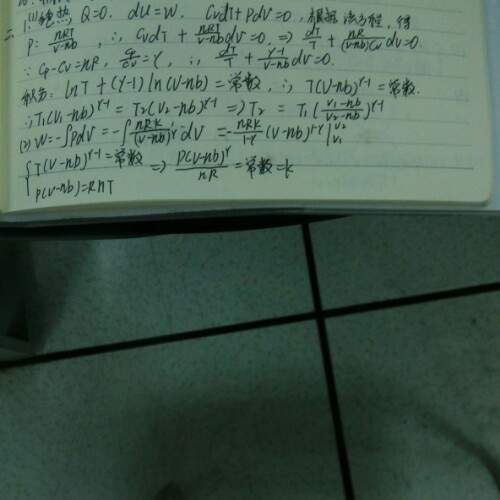 二、1.(1)绝热 Q=0. dU=W. CvdT+PdV=0. 根据 法方程,得
P=nRT/(V-nb), ∴ CvdT + nRT/(V-nb) dV=0. ⇒ dT/T + nR/((V-nb)Cv) dV=0.
∵ Cp-Cv=nR, Cp/Cv=γ, ∴ dT/T + (γ-1)/(V-nb) dV=0.
积分: lnT+(γ-1)ln(V-nb)=常数, ∴ T(V-nb)^(γ-1)=常数.
∴T1(V1-nb)^(γ-1) = T2(V2-nb)^(γ-1) ⇒ T2 = T1((V1-nb)/(V2-nb))^(γ-1)
(2) W=-∫PdV=-∫nRK/(V-nb)^γ dV = -nRK/(1-γ) (V-nb)^(1-γ)|V2 V1
{T(V-nb)^(γ-1)=常数 ⇒ P(V-nb)^γ/nR = 常数=k
P(V-nb)=RnT